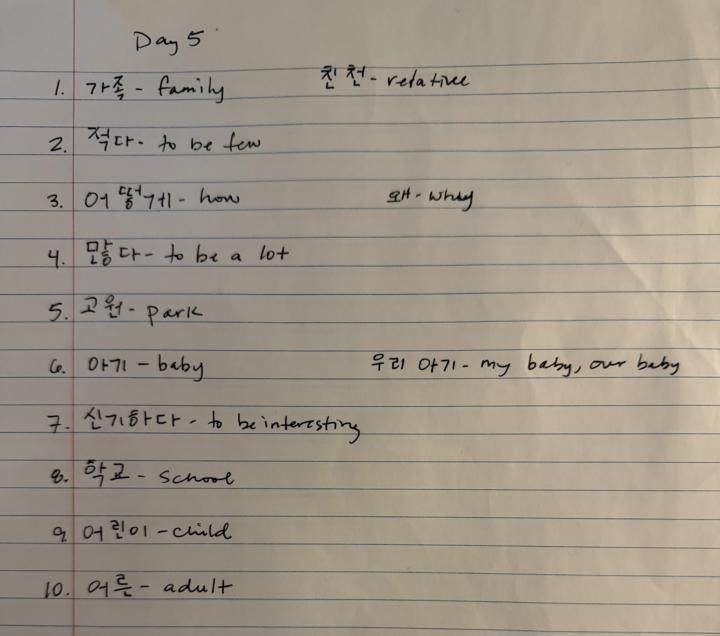 Day 5
1. 가족 - family 친천 - relative
2. 적다 - to be few
3. 어떻게 - how 왜 - why
4. 많다 - to be a lot
5. 고원 - park
6. 아기 - baby 우리 아기 - my baby, our baby
7. 신기하다 - to be interesting
8. 학교 - school
9. 어린이 - child
10. 어른 - adult